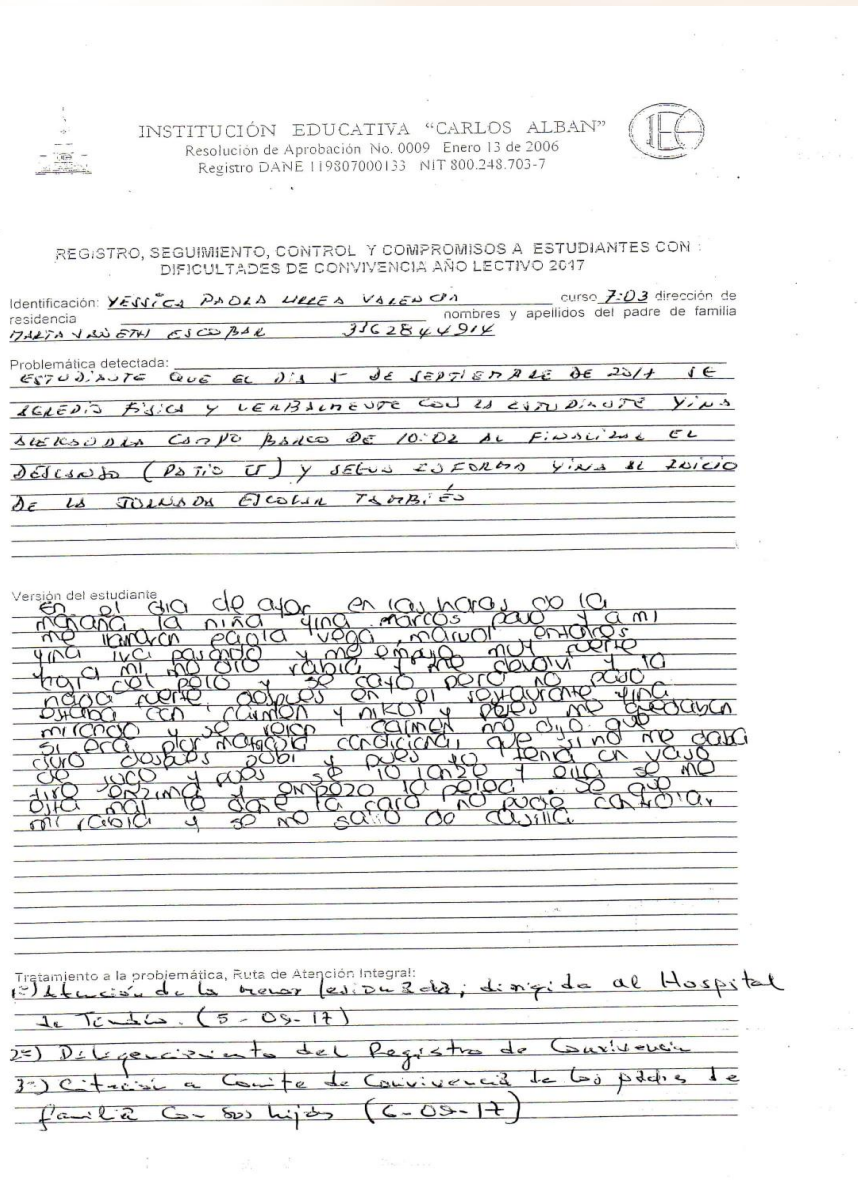 INSTITUCIÓN EDUCATIVA "CARLOS ALBAN"
Resolución de Aprobación No. 0009 Enero 13 de 2006
Registro DANE 119807000133 NIT 800.248.703-7
IECA
REGISTRO, SEGUIMIENTO, CONTROL Y COMPROMISOS A ESTUDIANTES CON
DIFICULTADES DE CONVIVENCIA AÑO LECTIVO 2017
Identificación: YESSICA PAOLA URREA VALENCIA curso 7:03 dirección de
residencia nombres y apellidos del padre de familia
MARTA YANETH ESCOBAR 3162844914
Problemática detectada:
ESTUDIANTE QUE EL DIA 5 DE SEPTIEMBRE DE 2017 SE
AGREDIO FISICA Y VERBALMENTE CON LA ESTUDIANTE YINA
CAMPO DE 10:02 AL FINALIZAR EL
DESCANSO (PATIO ) Y SEGUN INFORMA YINA AL INICIO
DE LA JORNADA ESCOLAR TAMBIÉN
Versión del estudiante
En el dia de ayer en las horas de la
mañana la niña yina marcos paso y a mi
me paola vega, manuel entonces
yina iva pasando y me empujo muy fuerte
a mi me dio rabia y me devolvi y la
del pelo y se cayo pero no paso
nada fuerte, despues en el restaurante yina
estaba con carmen y nikol y pues me quedaban
mirando y se carmen me dijo que
si era condiciona, que si no me daba
duro despues y pues yo tenia un vaso
de jugo y pues se lo lanze y ella se me
tiro enzima y empezo la pelea. se que
esta mal la cara no pude controlar
mi rabia y se me salio de casilla.
Tratamiento a la problemática, Ruta de Atención Integral:
1º) Atención de la menor lesionada; dirigida al Hospital
de Timbío. (5-09-17)
2º) Diligenciamiento del Registro de Convivencia
3º) Citación a Comite de Convivencia de los padres de
familia con sus hijos (6-09-17)